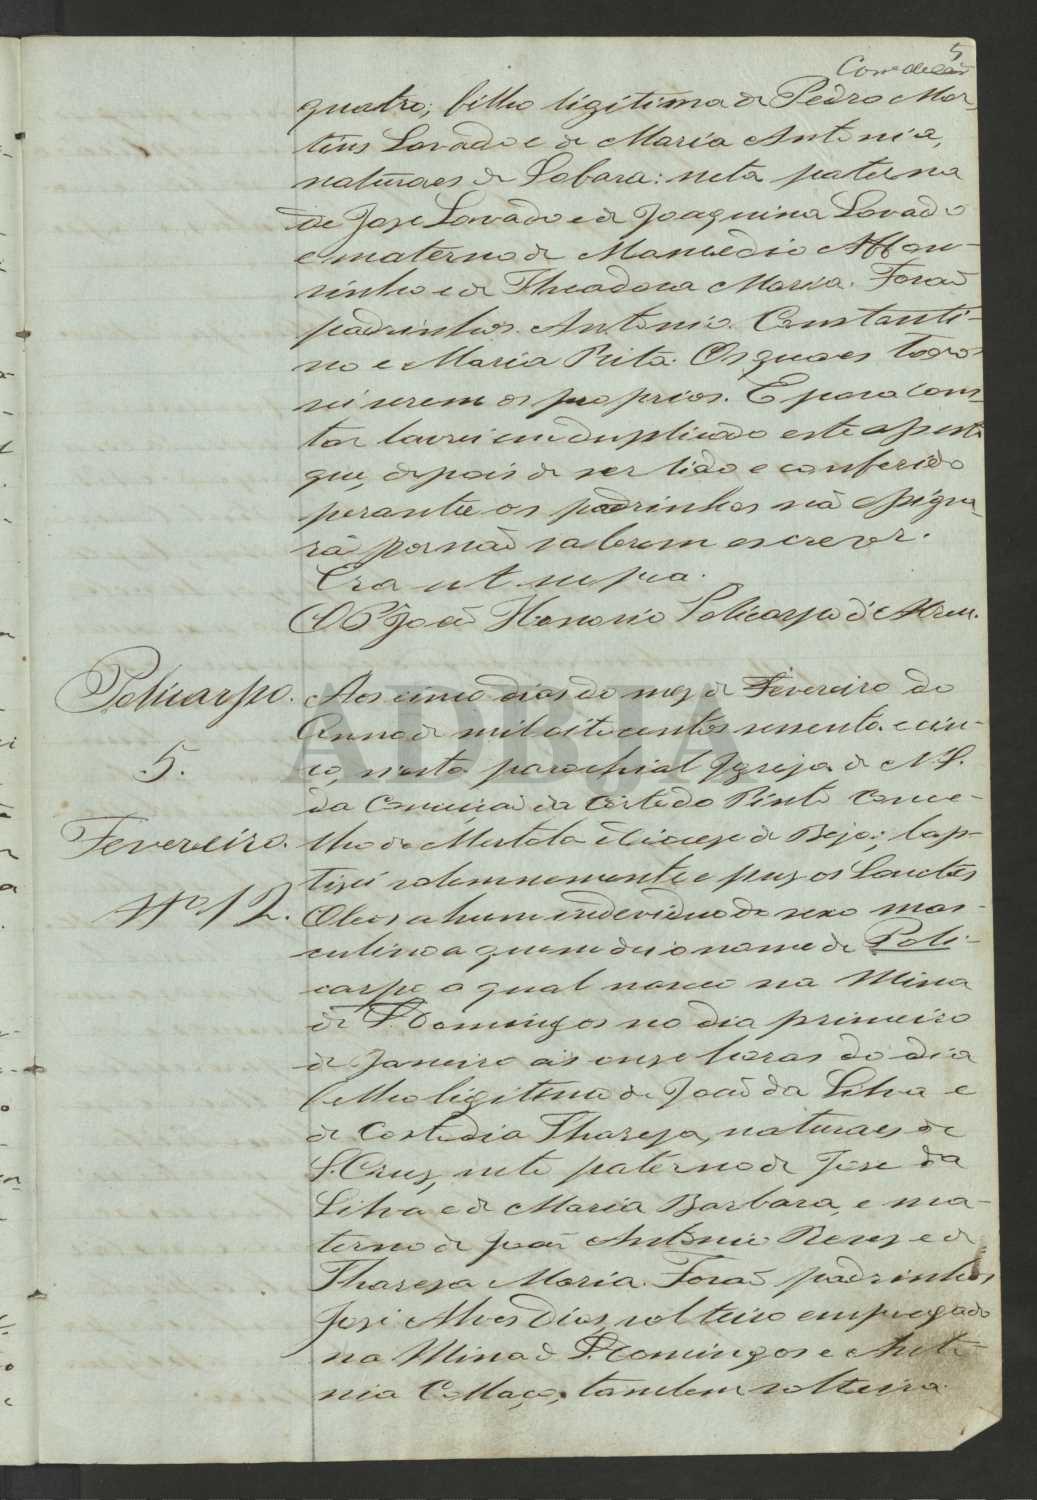 5
quatro, filho ligitima de Pedro Mar
tins Lovado e de Maria Antonia,
naturaes de Lobara: neta paterna
de Joze Lovado e de Joaquina Lovado
e materno de Mamedio Affon-
sinho e de Theadora Maria. Forão
padrinhos Antonio Constanti-
no e Maria Rita. Os quaes todos
sei serem os proprios. E para cons-
tar lavrei em duplicado este assento
que, depois de ser lido e conferido
perante os padrinhos não assigna-
rão por não saberem escrever.
Era ut supra.
O P.e João Honorio Policarpo d'Abreu.
Policarpo.
5.
Fevereiro.
Nº 12.
Aos cinco dias do mez de Fevereiro do
Anno de mil oito centos sessenta e cin-
co, n'esta parochial Igreja de N. S.
da Conceição da Côrte do Pinto Conce-
lho de Mertola e Diocese de Beja; bap-
tizei solemnemente e puz os Sanctos
Oleos a hum individuo do sexo mas-
culino a quem dei o nome de Poli-
carpo o qual nasceu na Mina
de S. Domingos no dia primeiro
de Janeiro ás onze horas do dia
filho ligitimo de João da Silva e
de Costodia Thareza, naturaes de
S. Cruz, neto paterno de Jose da
Silva e de Maria Barbara, e ma-
terno de João Antonio Revez e de
Thareza Maria. Forão padrinhos
José Alves Dias, solteiro empregado
na Mina de S. Domingos e Anto-
nia Collaço, tambem solteira
ADBJA